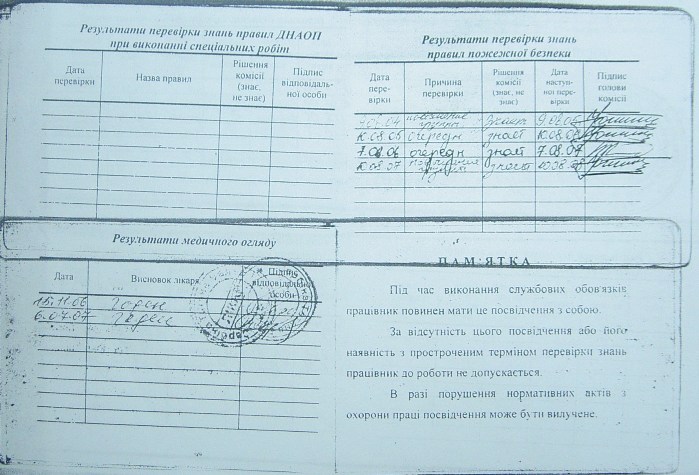 Результати перевірки знань правил ДНАОП
при виконанні спеціальних робіт
Дата
перевірки
Назва правил
Рішення
комісії
(знає,
не знає)
Підпис
відповідаль-
ної особи
Результати перевірки знань
правил пожежної безпеки
Дата
пере-
вірки
Причина
перевірки
Рішення
комісії
(знає, не
знає)
Дата
наступ-
ної пере-
вірки
Підпис
голови
комісії
10.08.05 очередн знает
7.08.06 очередн знает 7.08.07
10.08.07 знает
Результати медичного огляду
Дата
Висновок лікаря
Підпис
відповідальної
особи
15.11.06 годен
6.07.07 годен
ПАМ'ЯТКА
Під час виконання службових обов'язків
працівник повинен мати це посвідчення з собою.
За відсутність цього посвідчення або його
наявність з простроченим терміном перевірки знань
працівник до роботи не допускається.
В разі порушення нормативних актів з
охорони праці посвідчення може бути вилучене.